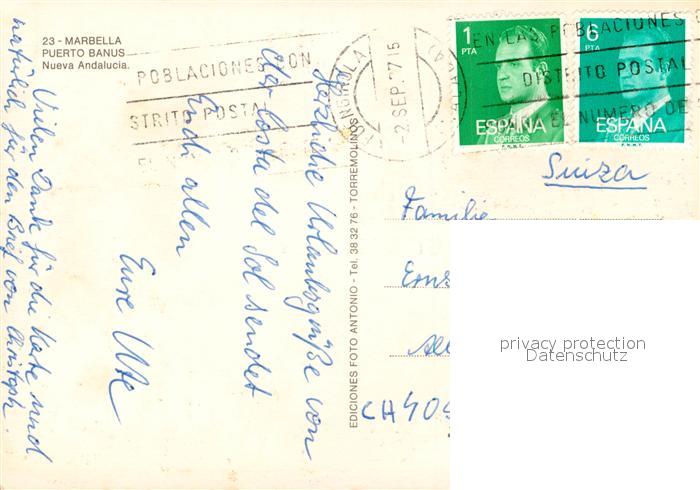 23 - MARBELLA
PUERTO BANUS
Nueva Andalucia.
POBLACIONES CON
STRITO POSTAL
-2. SEP. 77 15
EN LAS POBLACIONES
DISTRITO POSTAL
EL NUMERO DE
1
PTA
ESPAÑA
CORREOS
F.N.M.T.
6
PTA
ESPAÑA
CORREOS
F.N.M.T.
Herzliche Urlaubsgrüße von
der Costa del Sol sendet
Euch allen
Eure Ute
Vielen Dank für die Karte und
natürlich für den Brief von Christoph.
EDICIONES FOTO ANTONIO - Tel. 38 32 76 - TORREMOLINOS
Suiza
Familie
Erns
All
CH 405
privacy protection
Datenschutz